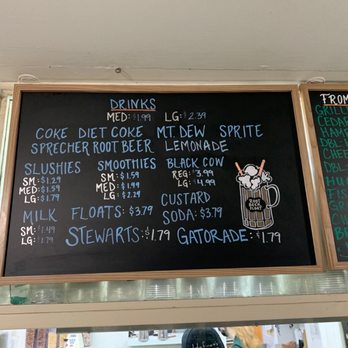 DRINKS
MED: $1.99 LG: $2.39
COKE DIET COKE MT. DEW SPRITE
SPRECHER ROOT BEER LEMONADE
SLUSHIES
SM: $1.29
MED: $1.59
LG: $1.79
SMOOTHIES
SM: $1.59
MED: $1.99
LG: $2.29
BLACK COW
REG: $3.99
LG: $4.99
MILK
SM: $1.49
LG: $1.79
FLOATS: $3.79
CUSTARD
SODA: $3.79
STEWARTS: $1.79 GATORADE: $1.79
ROOT
BEER
FLOAT
FROM
GRILLE
CEDAR
HAMB
DBL
CHEE
DBL